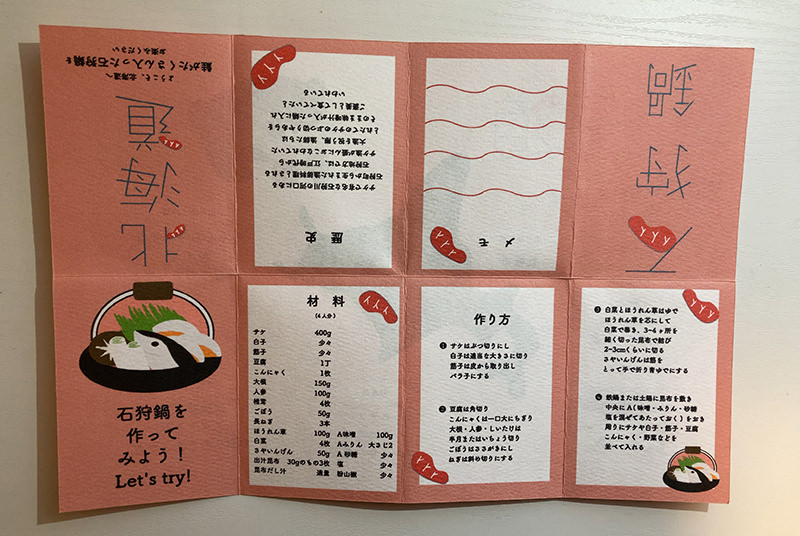 北海道
ようこそ、北海道へ
鮭がたくさん入った石狩鍋を
お楽しみください
歴史
サケで有名な石狩川の河口にある
石狩町から生まれた漁師料理とされる
石狩地方では、江戸時代から
サケ漁が盛んにおこなわれていた
大漁を祝う際、漁師たちは
とれたてのサケのぶつ切りやあらを
そのまま味噌汁が入った鍋に入れ
ご褒美として食べていたと
いわれている
メモ
石狩鍋
石狩鍋を
作って
みよう！
Let's try!
材料
(4人分)
サケ 400g
白子 少々
筋子 少々
豆腐 1丁
こんにゃく 1枚
大根 150g
人参 100g
椎茸 4枚
ごぼう 50g
長ねぎ 3本
ほうれん草 100g A味噌 100g
白菜 4枚 Aみりん 大さじ2
さやいんげん 50g A砂糖 少々
出汁昆布 30gのもの3枚 塩 少々
昆布だし汁 適量 粉山椒 少々
作り方
① サケはぶつ切りにし
白子は適当な大きさに切り
筋子は皮から取り出し
バラ子にする
② 豆腐は角切り
こんにゃくは一口大にちぎり
大根・人参・しいたけは
半月またはいちょう切り
ごぼうはささがきにし
ねぎは斜め切りにする
③ 白菜とほうれん草はゆで
ほうれん草を芯にして
白菜で巻き、3~4ヶ所を
細く切った昆布で結び
2~3cmくらいに切る
さやいんげんは筋を
とって手で折り青ゆでにする
④ 鉄鍋または土鍋に昆布を敷き
中央にA(味噌・みりん・砂糖
塩を混ぜてあたっておく)をおき
周りにサケヤ白子・筋子・豆腐
こんにゃく・野菜などを
並べて入れる